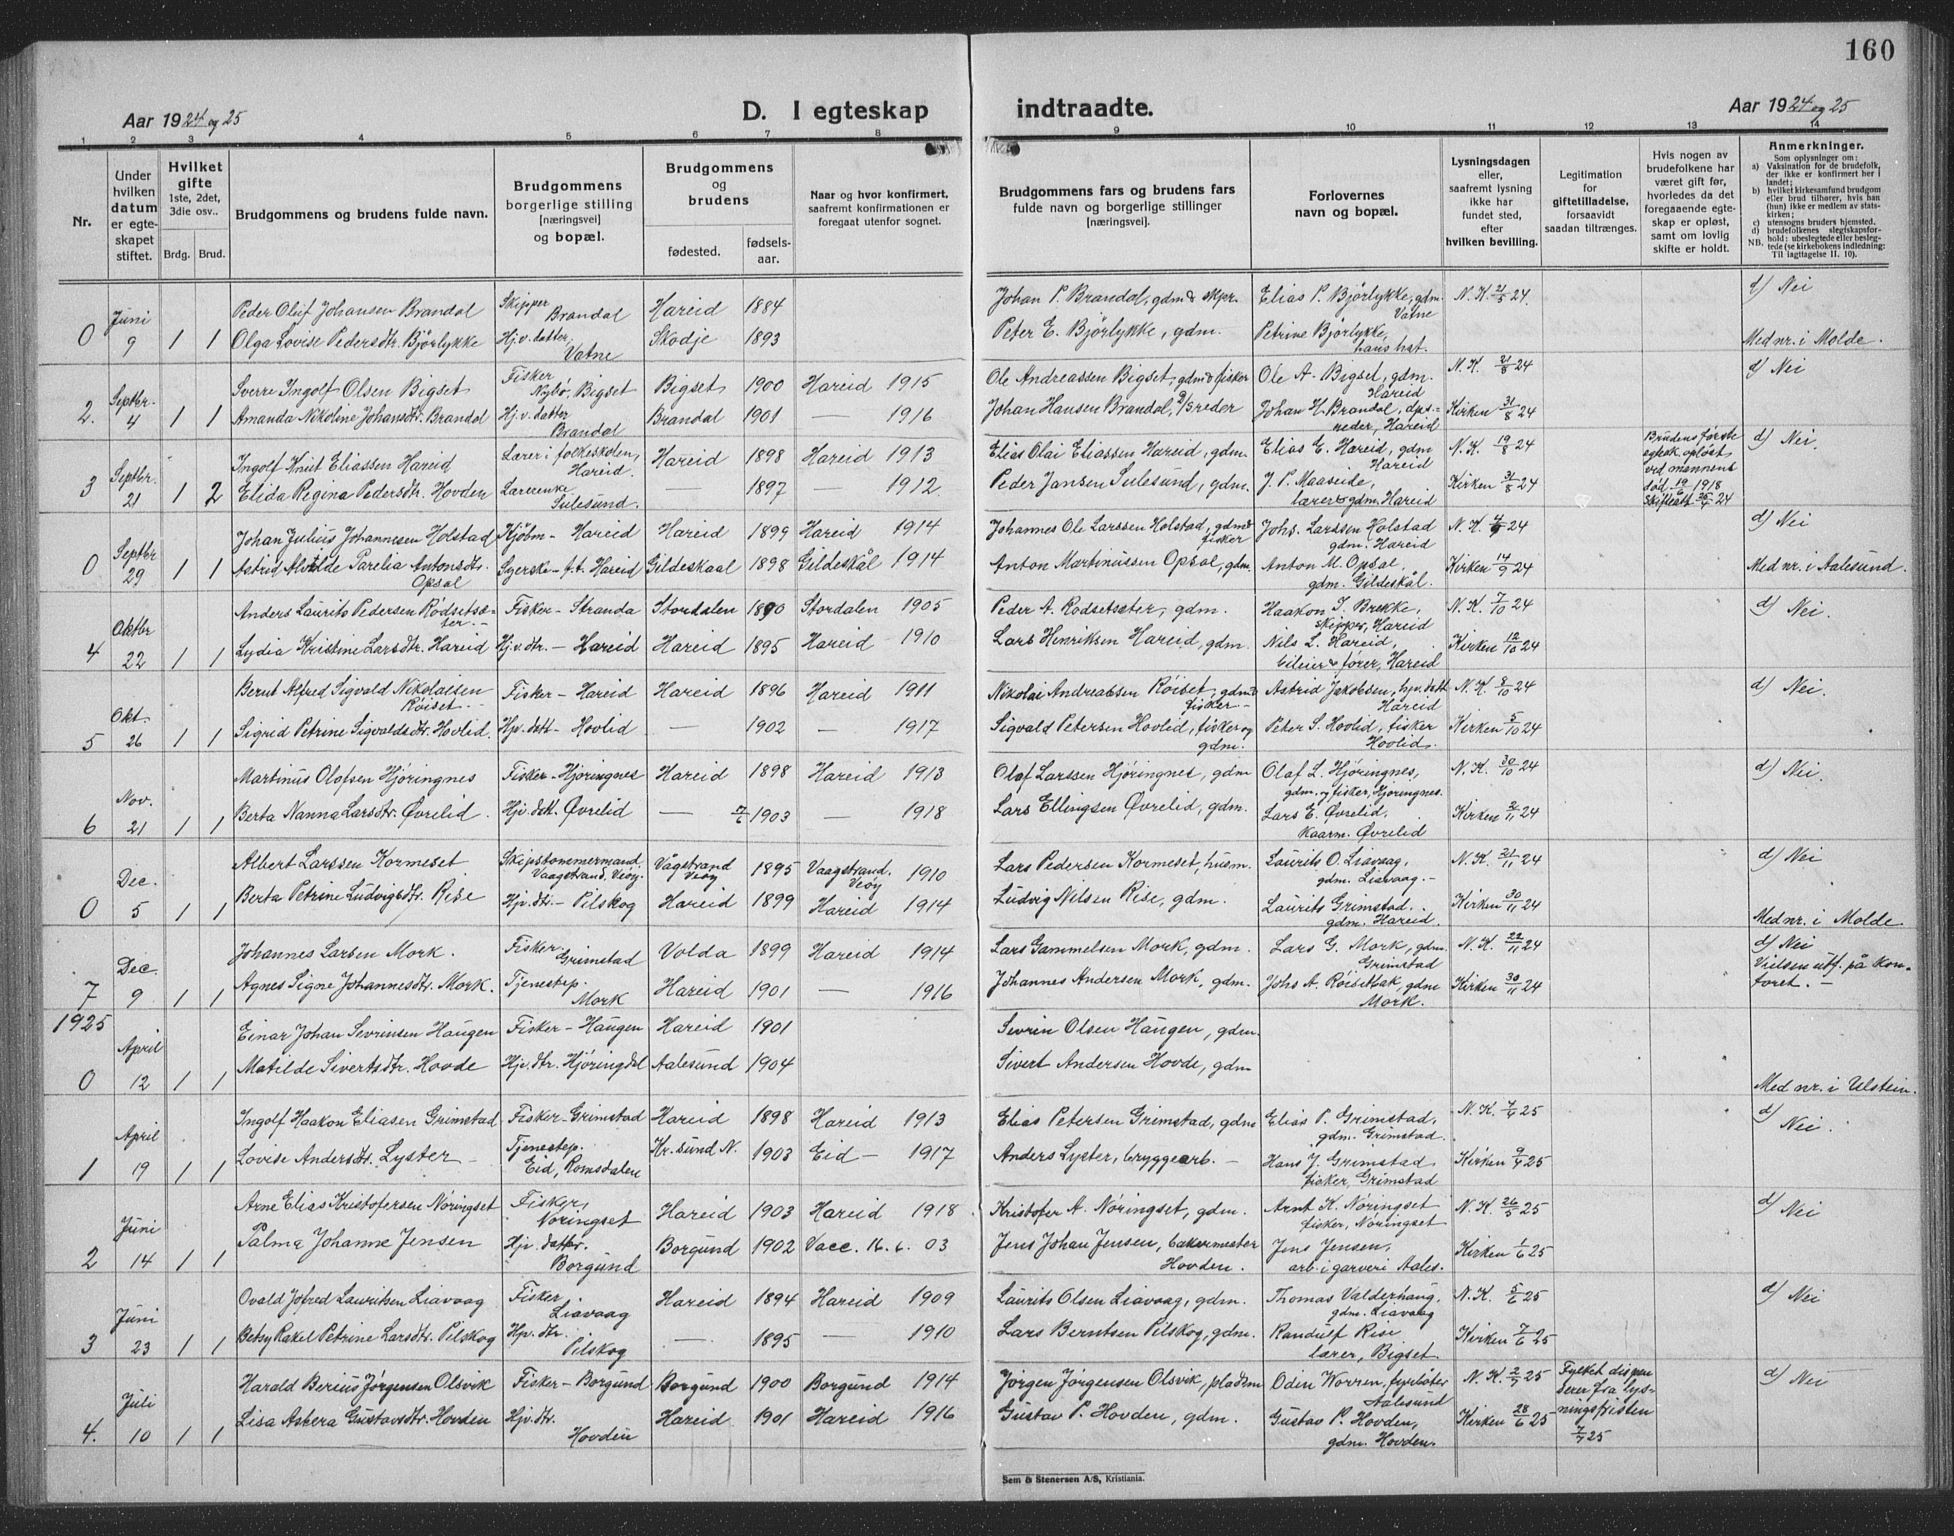 160
Aar 1924 og 25
D. I egteskap indtraadte.
Aar 1924 og 25
1 2 3 4 5 6 7 8 9 10 11 12 13 14
Nr.
Under hvilken datum er egteskapet stiftet.
Hvilket gifte 1ste, 2det, 3die osv..
Brdg. Brud.
Brudgommens og brudens fulde navn.
Brudgommens borgerlige stilling [næringsvei] og bopæl.
Brudgommens og brudens
fødested.
fødselsaar.
Naar og hvor konfirmert, saafremt konfirmationen er foregaat utenfor sognet.
Brudgommens fars og brudens fars fulde navn og borgerlige stillinger [næringsvei].
Forlovernes navn og bopæl.
Lysningsdagen eller, saafremt lysning ikke har fundet sted, efter hvilken bevilling.
Legitimation for giftetilladelse, forsaavidt saadan tiltrænges.
Hvis nogen av brudefolkene har været gift før, hvorledes da det foregaaende egteskap er opløst, samt om lovlig skifte er holdt.
Anmerkninger.
Som oplysninger om:
a) Vaksination for de brudefolk, der ikke er konfirmert her i landet;
b) hvilket kirkesamfund brudgom eller brud tilhører, hvis han (hun) ikke er medlem av statskirken;
c) utensogns brudens hjemsted.
d) brudefolkenes slegtskapsforhold: ubeslegtede eller beslegtede (se kirkebokens indledning: Til iagttagelse II. 10).
NB.
0 Juni 9 1 1
Peder Oluf Johansen Brandal Skipper Brandal Hareid 1884 Johan P. Brandal, gdm & skpr. Elias P. Bjørlykke, gdm. Vatne N.K. 21/5 24. d) Nei
Olga Lovise Pedersdtr. Bjørlykke Hj.v. datter, Vatne Skodje 1893 Peter E. Bjørlykke, gdm. Petrine Bjørlykke, Med nr. i Molde.
2. Septbr. 4 1 1
Sverre Ingolf Olsen Bigset Fisker Nybø, Bigset Bigset 1900 Hareid 1915 Ole Andreassen Bigset, gdm & fisker Ole A. Bigset, gdm. Hareid N.K. 21/8 24 d) Nei
Amanda Nikoline Johansdtr. Brandal Hj.v. datter Brandal Brandal 1901 1916 Johan Hansen Brandal, D/S reder Johan H. Brandal, dps.reder, Hareid Kirken 31/8 24
3 Septbr. 21 1 2
Ingolf Knut Eliassen Hareid Lærer i folkeskolen, Hareid. Hareid 1898 Hareid 1913 Elias Olai Eliassen Hareid, gdm. Elias E. Hareid, gdm Hareid N.K. 19/8 24 Brudens første egtesk. opløst ved mannens død 19/6 1918 Skifteatt. 25/4 24 d) Nei
Elida Regina Pedersdtr. Hovden Lærerenke Sulesund. — 1897 — 1912 Peder Jansen Sulesund, gdm. J. P. Maaseide, lærer & gdm. Hareid Kirken 31/8 24
0 Septbr 29 1 1
Johan Julius Johannesen Holstad Kjøbm - Hareid Hareid 1899 Hareid 1914 Johannes Ole Larssen Holstad, gdm & fisker Johs. Larssen Holstad gdm. Hareid N.K. 4/9 24 d) Nei
Astrid Alvilde Parelia Antonsdtr. Opsal Syerske - f.t. Hareid Gildeskaal 1898 Gildeskål 1914 Anton Martinussen Opsal, gdm. Anton M. Opsal, gdm. Gildeskål. Kirken 14/9 24 Med nr. i Aalesund.
4 Oktbr 22 1 1
Anders Laurits Pedersen Rødsetsæter. - Fisker - Stranda Stordalen 1890 Stordalen 1905 Peder A. Rødsetsæter, gdm. Haakon S. Brekke, skipper, Hareid N.K. 7/10 24 d) Nei.
Lydia Kristine Larsdtr. Hareid Hj.v. dtr. - Hareid Hareid 1895 Hareid 1910 Lars Henriksen Hareid, gdm. Nils L. Hareid, Eileier & fører, Hareid Kirken 12/10 24
5 Okt. 26 1 1
Bernt Alfred Sigvald Nikolaisen Røiset. - Fisker - Hareid Hareid 1896 Hareid 1911 Nikolai Andreassen Røiset, gdm & fisker - Astrid Jakobsen, hjv. datt Hareid N.K. 8/10 24 d) Nei.
Sigrid Petrine Sigvaldsdtr. Hovlid. Hjv. datt - Hovlid — 1902 — 1917 Sigvald Petersen Hovlid, fisker og gdm. Peter S. Hovlid, fisker Hovlid. Kirken 5/10 24
6 Nov. 21 1 1
Martinus Olafsen Hjøringnes Fisker - Hjøringnes Hareid 1898 Hareid 1913 Olaf Larssen Hjøringnes, gdm Olaf L. Hjøringnes, gdm. og fisker, Hjøringnes. N.K. 30/10 24 d) Nei.
Berta Nanna Larsdtr. Øvrelid. Hjv. datt. Øvrelid — 7/6 1903 — 1918 Lars Ellingsen Øvrelid, gdm. Lars E. Øvrelid, Kaarm. Øvrelid Kirken 2/11 24
0 Dec. 5 1 1
Albert Larssen Kormeset Skipstømmermand, Vaagstrand, Veøy. Vågstrand Veøy 1895 Vaagstrand. Veøy 1910 Lars Pedersen Kormeset, husm. Laurits O. Liavaag, gdm. Liavaag. - N.K. 21/11 24 d) Nei
Berta Petrine Ludvigsdtr. Rise Hjv. dtr. - Pilskog Hareid 1899 Hareid 1914 Ludvig Nilsen Rise, gdm. Laurits Grimstad. gdm. Hareid. Kirken 30/11 24 Med nr. i Molde.
7 Dec. 9 1 1
Johannes Larsen Mork. Fisker. Grimstad Volda 1899 Hareid 1914 Lars Gammelsen Mork, gdm. Lars G. Mork, gdm. Grimstad N.K. 22/11 24 d) Nei Vielsen utf. på kontoret. -
Agnes Signe Johannesdtr. Mork. Tjenestep. Mork Hareid 1901 — 1916 Johannes Andersen Mork, gdm. Johs A. Røisetbak, gdm Mork. Kirken 30/11 24
1925
0 April 12 1 1
Einar Johan Sevrinsen Haugen Fisker - Haugen Hareid 1901 Sevrin Olsen Haugen, gdm
Matilde Sivertsdtr. Hovde Hjv. dtr. Hjøringdal Aalesund 1904 Sivert Andersen Hovde, gdm Med nr. i Ulstein.
1 April 19 1 1
Ingolf Haakon Eliasen Grimstad Fisker - Grimstad Hareid 1898 Hareid 1913 Elias Petersen Grimstad, gdm Elias P. Grimstad, gdm. Grimstad. N.K. 7/4 25 d) Nei.
Lovise Andersdtr. Lyster - Tjenestep. Eid, Romsdalen Kr.sund N. 1903 Eid - 1917 Anders Lyster, bryggearb. - Hans J. Grimstad fisker, Grimstad Kirken 9/4 25
2 Juni 14 1 1
Arne Elias Kristofersen Nøringset Fisker, Nøringset Hareid 1903 Hareid 1918 Kristofer A. Nøringset, gdm. Arnt K. Nøringset fisker, Nøringset N.K. 26/5 25 d) Nei
Palma Johanne Jensen Hjv. datter. Borgund Borgund 1902 Vacc. 16.6.03 Jens Johan Jensen, bakermester Hovden. Jens Jensen, arb. i garveri Aales. Kirken 1/6 25
3 Juni 23 1 1
Ovald Jofred Lauritsen Liavaag Fisker Liavaag Hareid 1894 Hareid 1909 Laurits Olsen Liavaag, gdm. Thomas Valderhaug, gdm. Liavaag N.K. 5/6 25 d) Nei
Betsy Rakel Petrine Larsdtr. Pilskog Hjv. dtr. Pilskog — 1895 — 1910 Lars Berntsen Pilskog, gdm. Randulf Rise lærer, Bigset. Kirken 7/6 25
4. Juli 10 1 1
Harald Berius Jørgensen Olsvik Fisker - Borgund Borgund 1900 Borgund 1914 Jørgen Jørgensen Olsvik, pladsm Oden Worren, fyrbøter Aalesund N.K. 2/7 25 Fylket dispenserer fra lysningsfristen 7/7 25 d) Nei
Lisa Asbera Gustavsdtr. Hovden Hjv. dtr. Hovden Hareid 1901 Hareid 1916 Gustav P. Hovden, gdm. Gustav P. Hovden, gdm. Hovden. Kirken 28/6 25
Sem & Stenersen A/S, Kristiania.